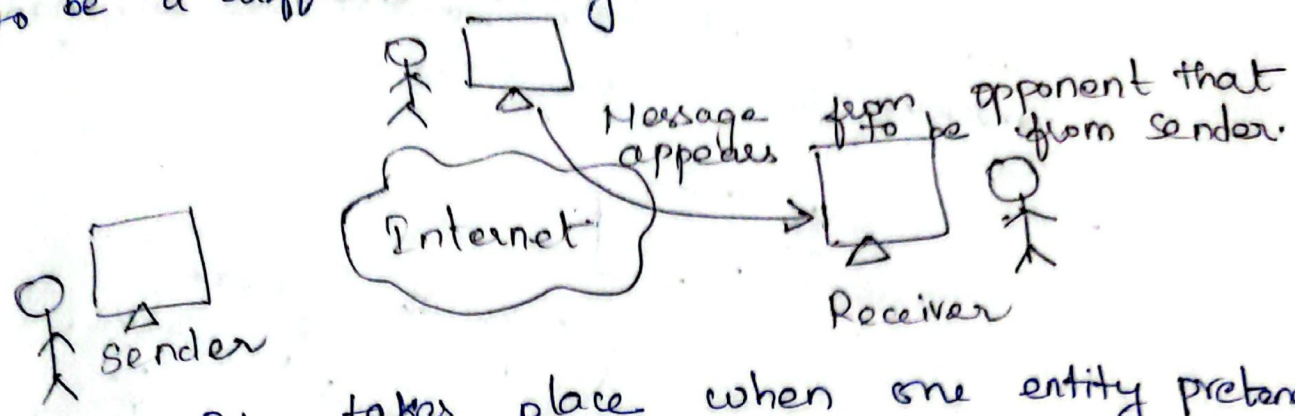 to be a
Message from opponent that
appears to be from sender.
Internet
Receiver
sender
takes place when one entity preten